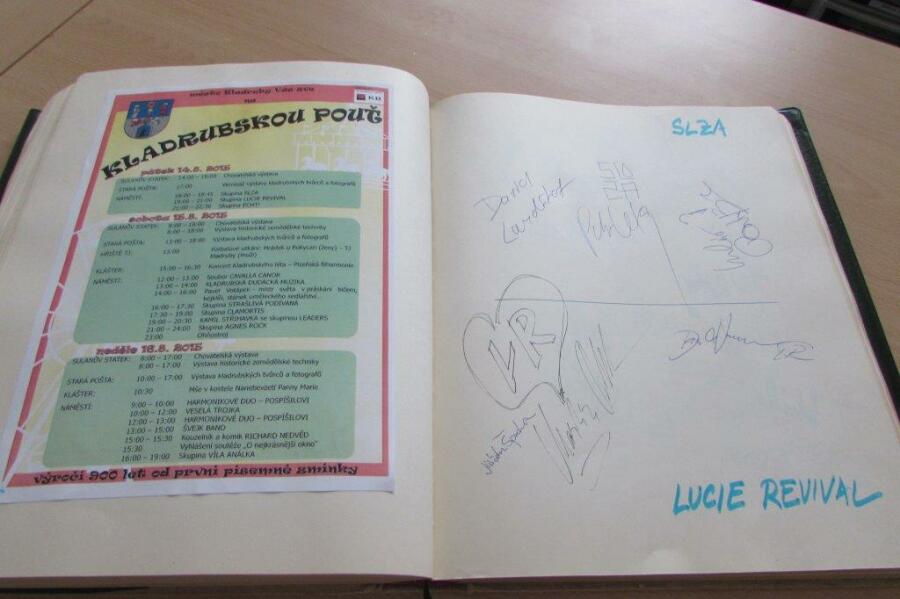 město Kladruby Vás zve
na
KB
KLADRUBSKOU POUŤ
pátek 14.8. 2015
SULANŮV STATEK: 14:00 – 18:00 Chovatelská výstava
STARÁ POŠTA: 17:00 Vernisáž výstavy kladrubských tvůrců a fotografů
NÁMĚSTÍ: 18:00 – 18:45 Skupina SLZA
19:00 – 21:00 Skupina LUCIE REVIVAL
21:00 – 22:30 Skupina ECHT!
sobota 15.8. 2015
SULANŮV STATEK: 8:00 – 19:00 Chovatelská výstava
8:00 – 18:00 Výstava historické zemědělské techniky
STARÁ POŠTA: 13:00 – 18:00 Výstava kladrubských tvůrců a fotografů
HŘIŠTĚ TJ: 13:00 Fotbalové utkání: Hrádek u Rokycan (ženy) – TJ
Kladruby (muži)
KLÁŠTER: 15:00 – 16:30 Koncert Kladrubského léta – Plzeňská filharmonie
NÁMĚSTÍ: 12:00 – 13:00 Soubor CAVALLA CANOR
13:00 – 14:00 KLADRUBSKÁ DUDÁCKÁ MUZIKA
14:00 – 16:00 Pavel Votápek – mistr světa v práskání bičem,
kejklíř, stánek uměleckého sedlářství...
16:00 – 17:30 Skupina STRAŠLIVÁ PODÍVANÁ
17:30 – 19:00 Skupina CLAMORTIS
19:00 – 20:30 KAMIL STŘIHAVKA se skupinou LEADERS
21:00 – 24:00 Skupina AGNES ROCK
23:00 Ohňostroj
neděle 16.8. 2015
SULANŮV STATEK: 8:00 – 17:00 Chovatelská výstava
8:00 – 17:00 Výstava historické zemědělské techniky
STARÁ POŠTA: 10:00 – 17:00 Výstava kladrubských tvůrců a fotografů
KLÁŠTER: 10:30 Mše v kostele Nanebevzetí Panny Marie
NÁMĚSTÍ: 9:00 – 10:00 HARMONIKOVÉ DUO – POSPÍŠILOVI
10:00 – 12:00 VESELÁ TROJKA
12:00 – 13:00 HARMONIKOVÉ DUO – POSPÍŠILOVI
13:00 – 15:00 ŠVEJK BAND
15:00 – 15:30 Kouzelník a komik RICHARD NEDVĚD
15:30 Vyhlášení soutěže „O nejkrásnější okno"
16:00 – 19:00 Skupina VÍLA ANÁLKA
výročí 900 let od první písemné zmínky
SLZA
Daniel
LR
LUCIE REVIVAL